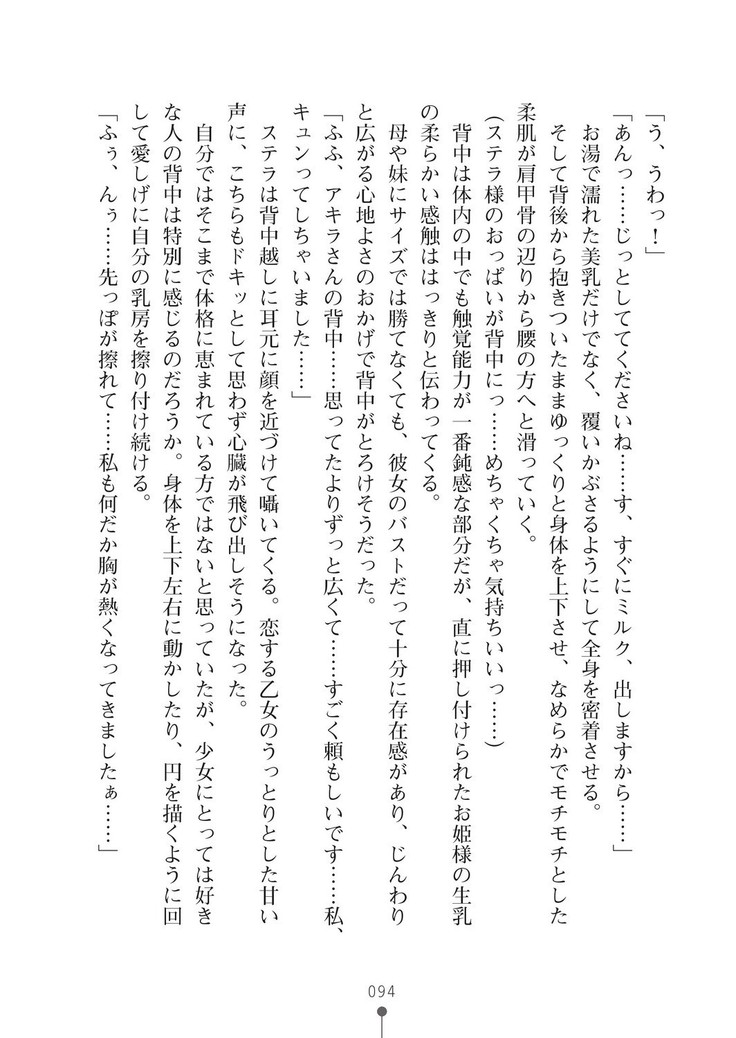 「う、うわっ！」
「あんっ……じっとしててくださいね……す、すぐにミルク、出しますから……」
お湯で濡れた美乳だけでなく、覆いかぶさるようにして全身を密着させる。
そして背後から抱きついたままゆっくりと身体を上下させ、なめらかでモチモチとした
柔肌が肩甲骨の辺りから腰の方へと滑っていく。
（ステラ様のおっぱいが背中にっ……めちゃくちゃ気持ちいいっ……）
背中は体内の中でも触覚能力が一番鈍感な部分だが、直に押し付けられたお姫様の生乳
の柔らかい感触ははっきりと伝わってくる。
母や妹にサイズでは勝てなくても、彼女のバストだって十分に存在感があり、じんわり
と広がる心地よさのおかげで背中がとろけそうだった。
「ふふ、アキラさんの背中……思ってたよりずっと広くて……すごく頼もしいです……私、
キュンってしちゃいました……」
ステラは背中越しに耳元に顔を近づけて囁いてくる。恋する乙女のうっとりとした甘い
声に、こちらもドキッとして思わず心臓が飛び出しそうになった。
自分ではそこまで体格に恵まれている方ではないと思っていたが、少女にとっては好き
な人の背中は特別に感じるのだろうか。身体を上下左右に動かしたり、円を描くように回
して愛しげに自分の乳房を擦り付け続ける。
「ふぅ、んぅ……先っぽが擦れて……私も何だか胸が熱くなってきましたぁ……」
094